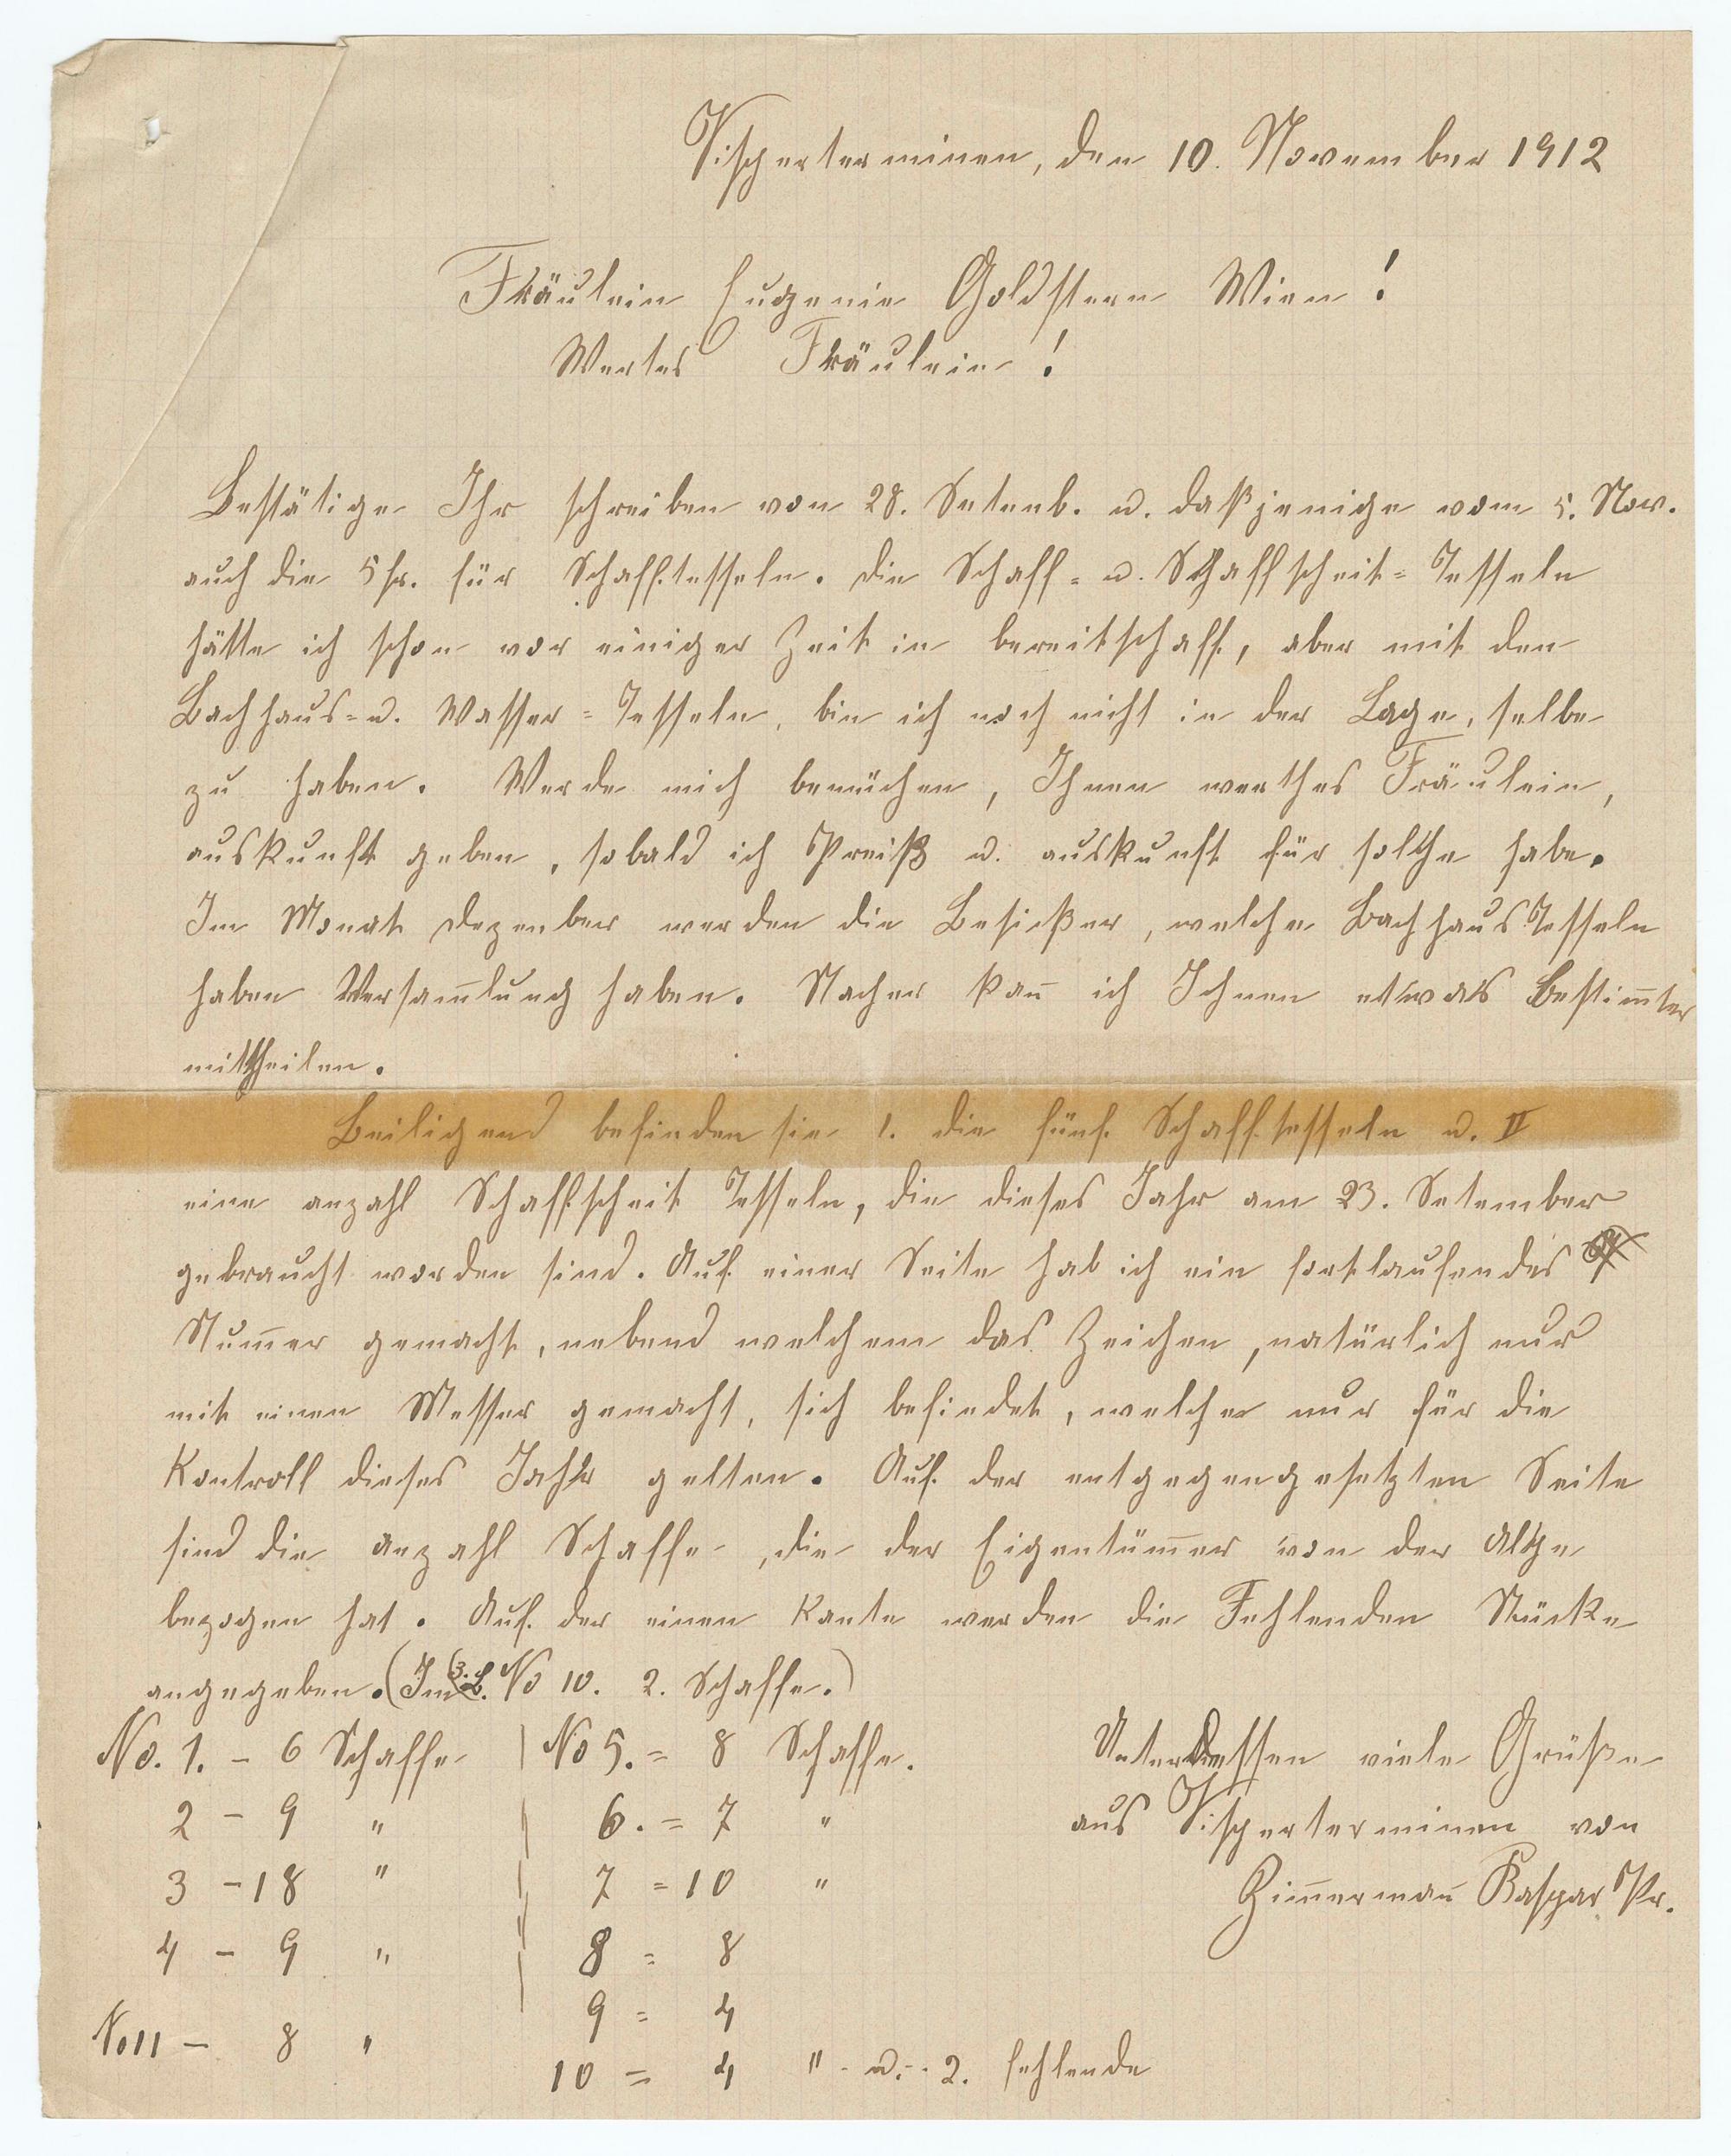 Visperterminen, den 10. November 1912
Fräulein Eugenie Goldstern Wien !
Wertes Fräulein !
Bestätige Ihr schreiben von 28. Setenb. u. daßjenige vom 5. Nov.
auch die 5 fr. für Schafftesseln. die Schaff= u. Schaffscheit=Tesseln
hätte ich schon vor einiger Zeit in bereitschaft, aber mit den
Bachhaus= u. Wasser=Tesseln, bin ich noch nicht in der Lage, selbe
zu haben. Werde mich bemüchen, Ihnen werthes Fräulein,
auskunft geben, sobald ich Preiß u. auskunft für solche habe.
Im Monat Dezenber werden die Besießer, welche Bachhaus Tesseln
haben Versam̅lung haben. Nacher kan̅ ich Ichnen etwas Bestim̅ter
mittheilen.
Beiligend befinden sie 1. die fünf Schafftesseln u. II
eine anzahl Schaffscheit Tesseln, die dieses Jahr am 23. Setember
gebraucht worden sind. Auf einer Seite hab ich ein fortlaufendes
Num̅er gemacht, nebend welchem das Zeichen, natürlich nur
mit einen Messer gemacht, sich befindet, welche nur für die
Kontroll dieses Jahr gelten. Auf der entgegengesetzten Seite
sind die Anzahl Schaffe, die der Eigentüm̅er von der Alpe
bezogen hat. Auf der einen Kante werden die Fehlenden Stücke
angegeben. (Im z.B. No 10. 2. Schaffe.)
No. 1. - 6 Schaffe | No 5. = 8 Schaffe.
2 - 9 " | 6. = 7 "
3 - 18 " | 7 = 10 "
4 - 9 " | 8 = 8
9 = 4
No 11 - 8 "
10 = 4 " - u. - 2. fehlende
Unterdessen viele Grüße
aus Visperterminen von
Zim̅erman̅ Kaspar Pr.